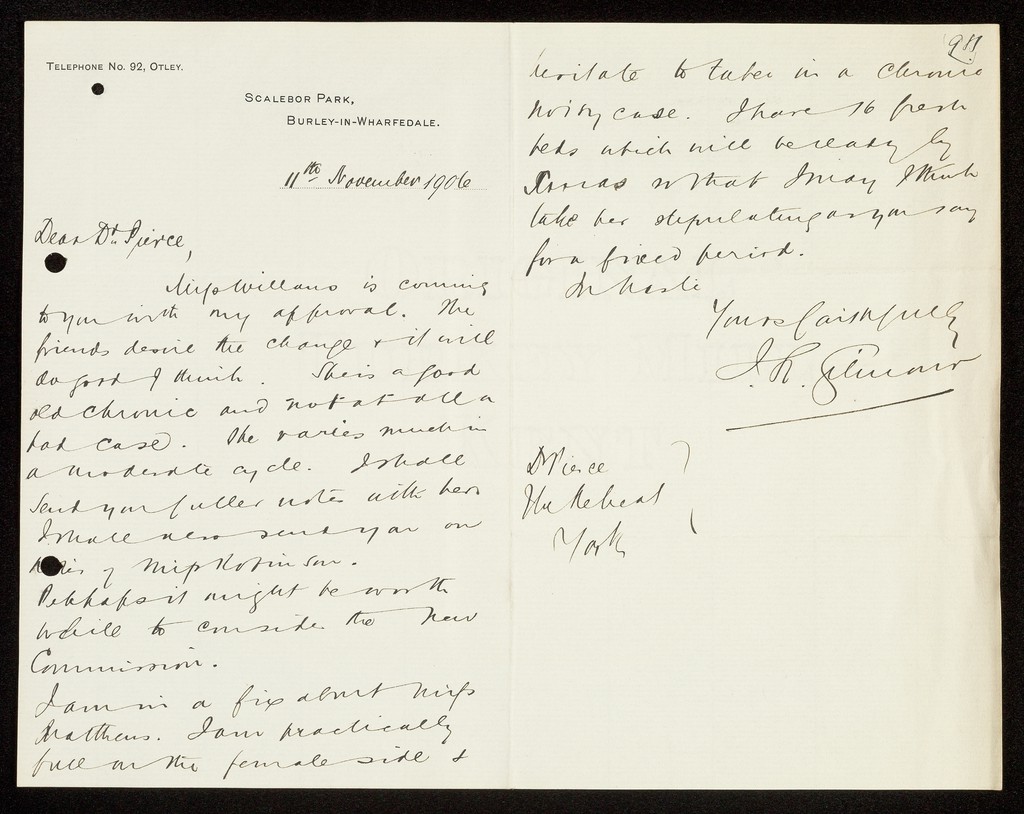 TELEPHONE NO. 92, OTLEY.
SCALEBOR PARK,
BURLEY-IN-WHARFEDALE.
11th November 1906
Dear Dr. Pierce,
Miss Willans is coming
to you with my approval. The
friends desire the change & it will
do good I think. She is a good
old chronic and not at all a
bad case. She varies much in
a moderate cycle. I shall
send you fuller notes with her.
I shall also send you on
of Miss Robinson.
Perhaps it might be worth
while to consider the new
Commission.
I am in a fix about Miss
Matthews. I am practically
full on the female side &
911
hesitate to take in a chronic
noisy case. I have 16 fresh
beds which will be ready by
Xmas so that I may I think
take her stipulating as you say
for a fixed period.
In haste
Yours faithfully
J. R. Gilmour
Dr Pierce
The Retreat
York